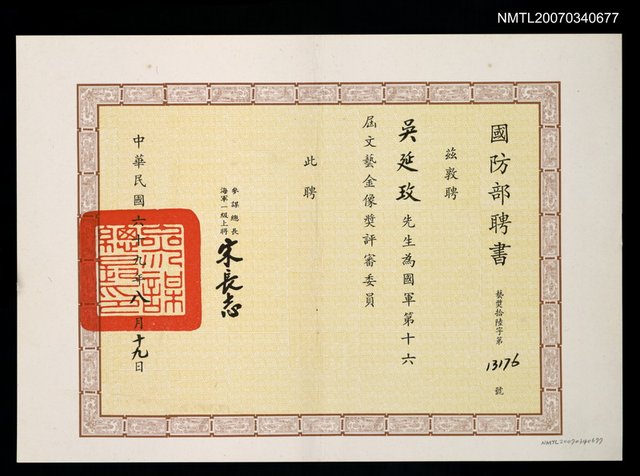 NMTL20070340677
國防部聘書
藝獎拾陸字第
13176
號
茲敦聘
吳延玫先生為國軍第十六
屆文藝金像獎評審委員
此聘
參謀總長
海軍一級上將
宋長志
中華民國六十九年八月十九日
參謀
總長印
NMTL20070340677